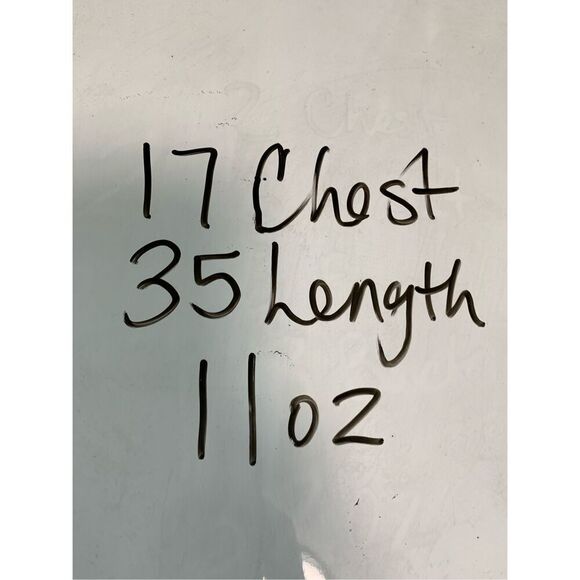 17 Chest
35 Length
11oz